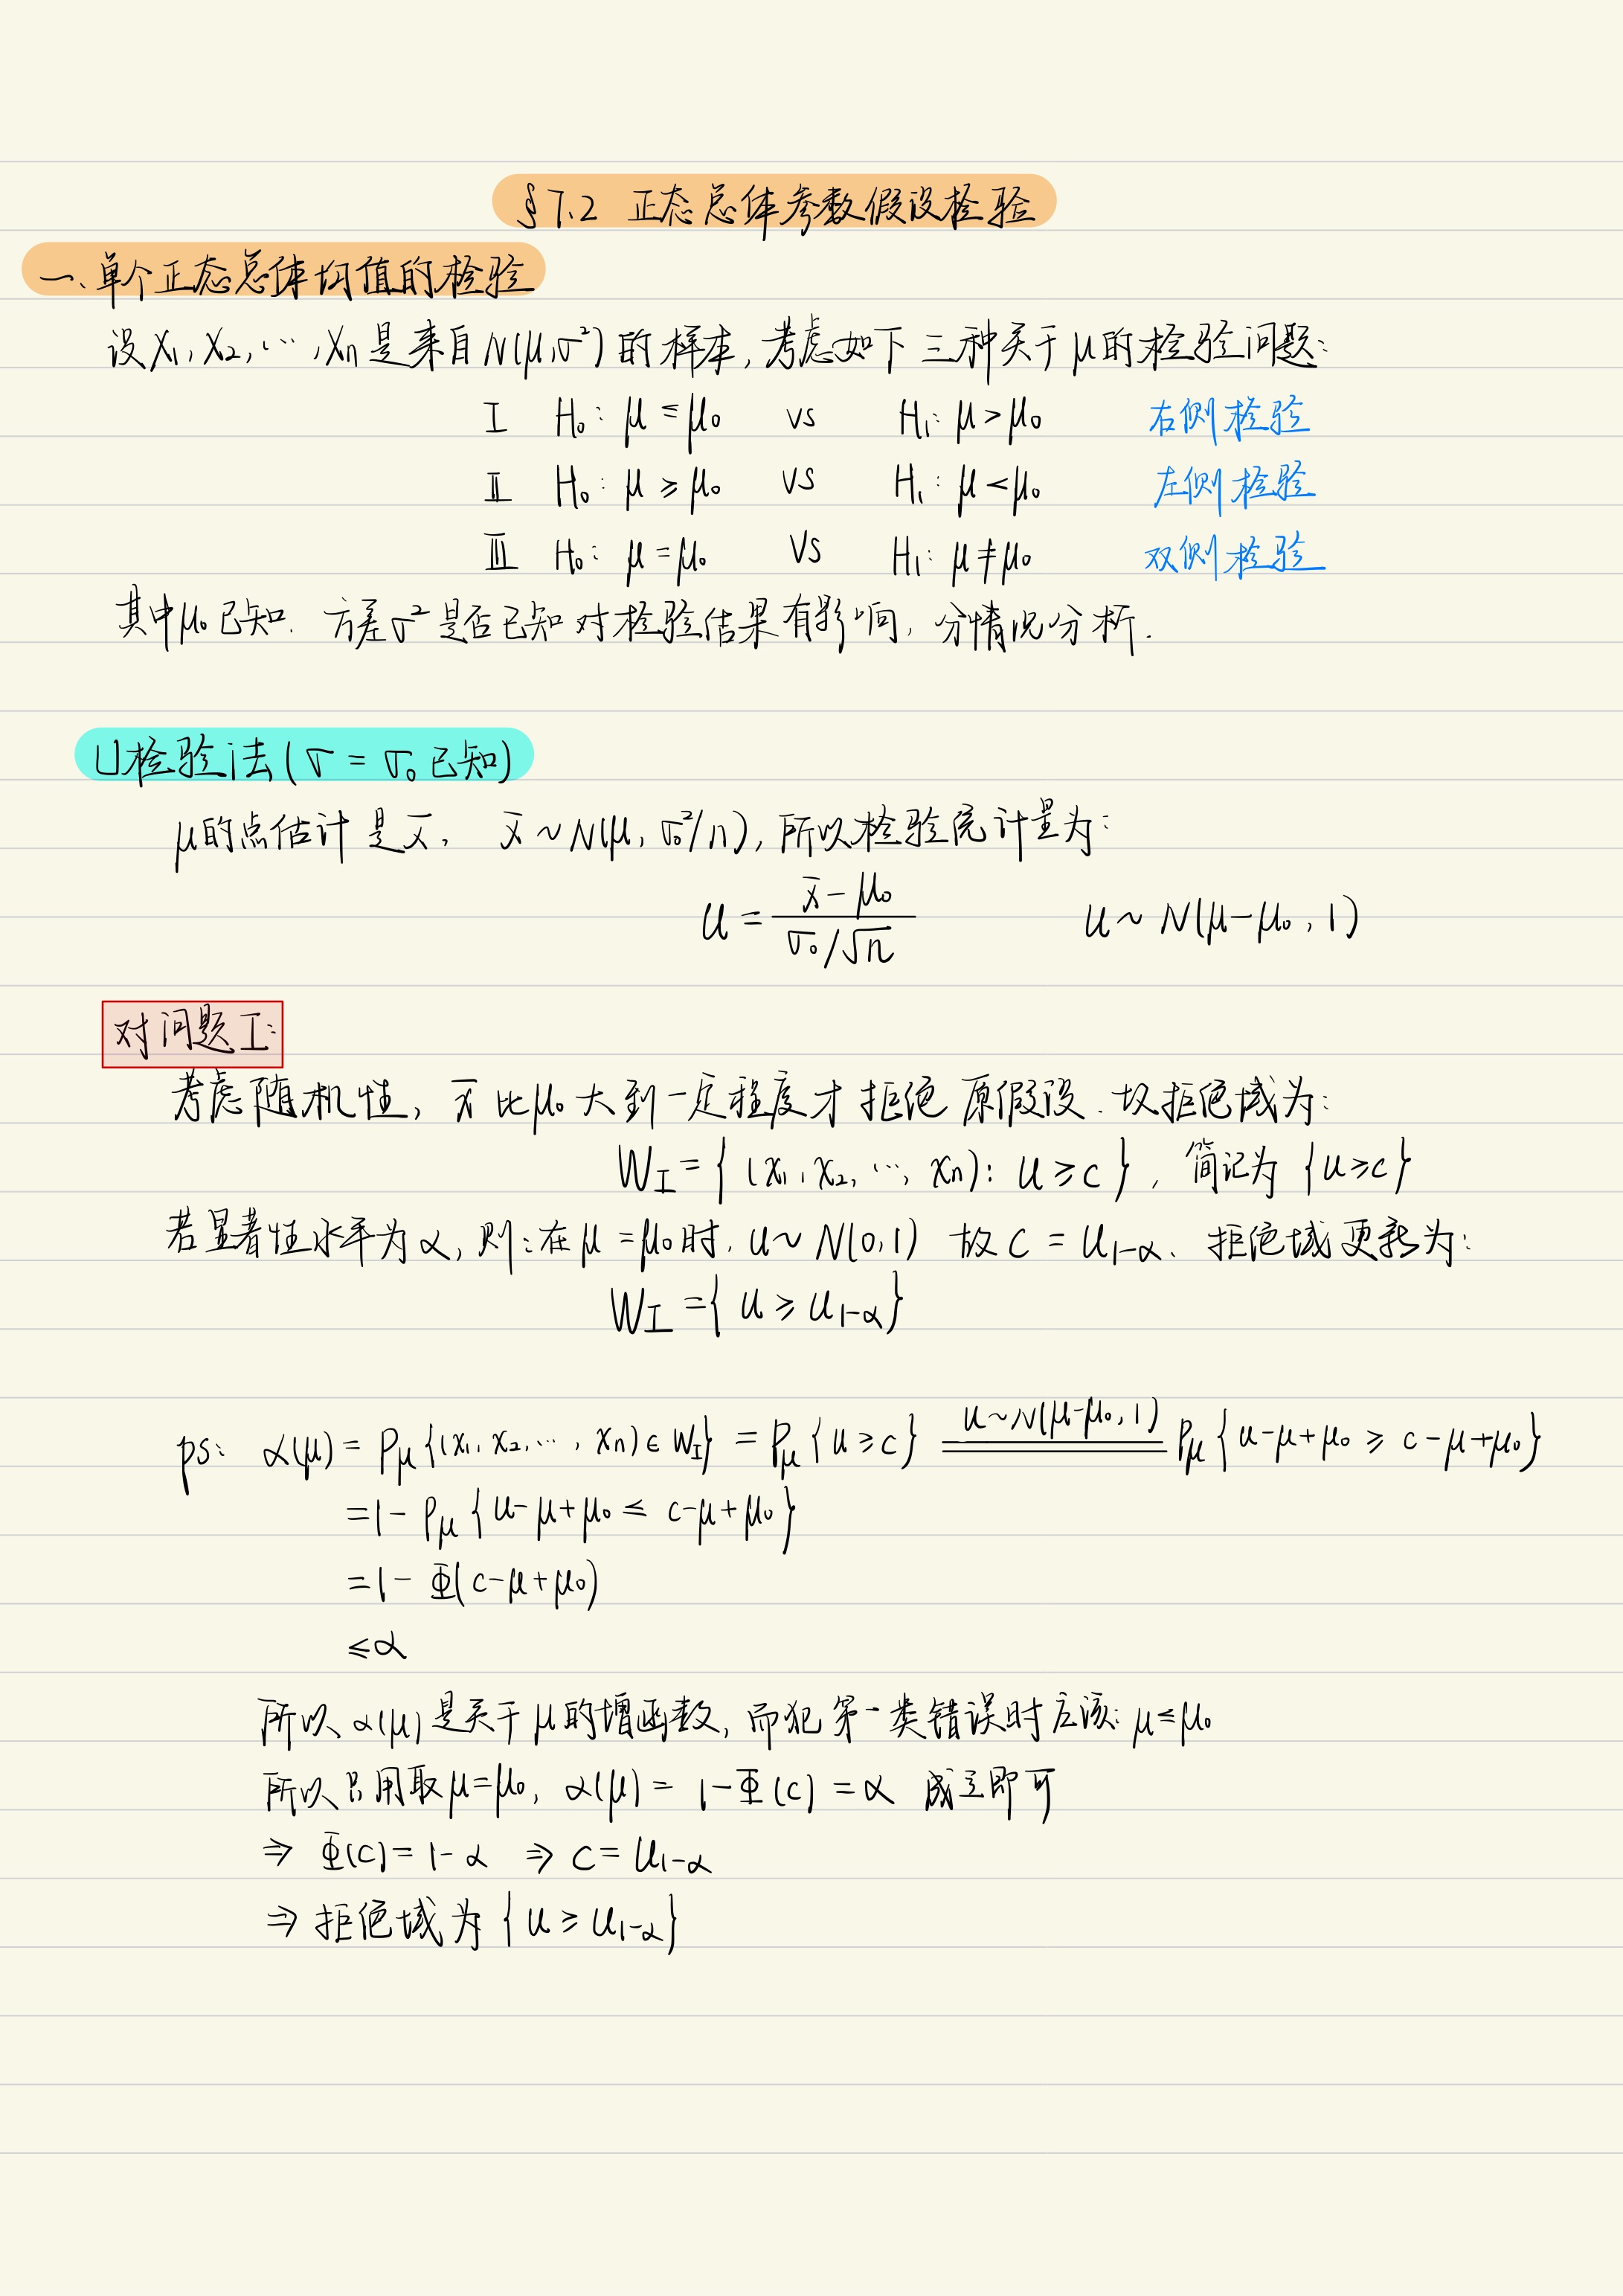 §7.2 正态总体参数假设检验
一、单个正态总体均值的检验
设x₁, x₂, ⋯, xₙ是来自N(μ,σ²)的样本, 考虑如下三种关于μ的检验问题:
Ⅰ H₀: μ ≤ μ₀ vs H₁: μ > μ₀ 右侧检验
Ⅱ H₀: μ ≥ μ₀ vs H₁: μ < μ₀ 左侧检验
Ⅲ H₀: μ = μ₀ vs H₁: μ ≠ μ₀ 双侧检验
其中μ₀已知. 方差σ²是否已知对检验结果有影响, 分情况分析.
U检验法(σ = σ₀ 已知)
μ的点估计是x̄, x̄ ~ N(μ, σ₀²/n), 所以检验统计量为:
u = (x̄ - μ₀)/(σ₀/√n) u ~ N(μ-μ₀, 1)
对问题Ⅰ:
考虑随机性, x̄ 比μ₀大到一定程度才拒绝原假设. 故拒绝域为:
W_Ⅰ = { (x₁, x₂, ⋯, xₙ): u ≥ c }, 简记为 {u ≥ c}
若显著性水平为α, 则: 在μ = μ₀时, u ~ N(0,1) 故 c = u_{1-α}. 拒绝域更新为:
W_Ⅰ = { u ≥ u_{1-α} }
ps: α(μ) = P_μ{(x₁, x₂, ⋯, xₙ) ∈ W_Ⅰ} = P_μ{u ≥ c} \xlongequal{u ~ N(μ-μ₀, 1)} P_μ{u-μ+μ₀ ≥ c-μ+μ₀}
= 1 - P_μ{u-μ+μ₀ ≤ c-μ+μ₀}
= 1 - Φ(c-μ+μ₀)
≤ α
所以 α(μ) 是关于 μ 的增函数, 而犯第一类错误时应该: μ ≤ μ₀
所以只用取μ = μ₀, α(μ) = 1-Φ(c) = α 成立即可
⇒ Φ(c) = 1-α ⇒ c = u_{1-α}
⇒ 拒绝域为 {u ≥ u_{1-α}}